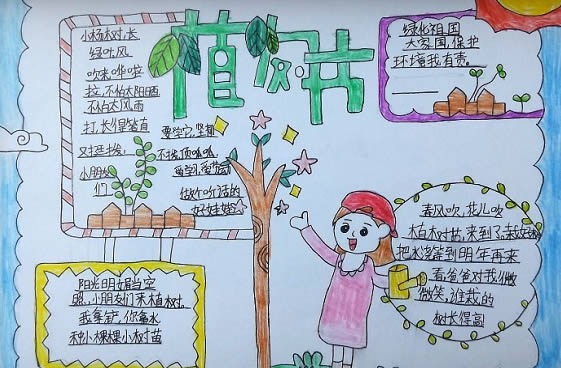 植树节
小杨树,长
绿叶,风
吹来哗啦
拉,不怕太阳晒
不怕大风雨
打,长得笔直
又挺拔,
小朋友
们
要学它,坚挺
不拔,顶呱呱
做个听话的
好娃娃
绿化祖国
大家园,保护
环境我有责。
阳光明媚当空
照,小朋友们来植树。
我拿铲,你拿水
种小棵棵小树苗
春风吹,花儿吹
来到了
把水浇 到明年再来
看爸爸对我微
微笑,谁栽的
树长得高